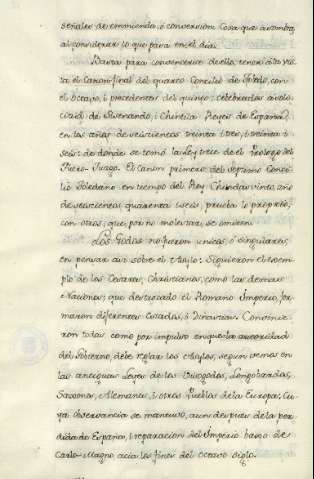 señales de enmienda, ó conversion. Cosa que asombra
al considerar lo que pasa en el dia.
Basta para convencerse de ello tener á la vis
ta el Canon final del quarto Concilio de Toledo, con
el Octavo, i precedentes del quinto: celebrados a solo
citud de Sisenando, i Chintila Reyes de España,
en los años de seiscientos treinta i tres, i treinta i
seis: de donde se tomó la Ley trece del Prologo del
Fuero-Juzgo. El Canon primero del Septimo Conci
lio Toledano en tiempo del Rey Chindasvinto, año
de seiscientos quarenta i seis, prueba lo proprio,
con otros, que por no molestar se omiten.
Los Godos no fueron unicos, ó singulares,
en pensar asi sobre el Asylo: Siguieron el exem
plo de los Cesares Christianos, como las demas
Naciones, que destrozado el Romano Imperio, for
maron diferentes Estados, ó Dinastias. Convinie
ron todas como por impulso en que la autoridad
del Govierno, debe reglar los Asylos, segun vemos en
las antiguas Leyes de los Visogodos, Longobardos,
Saxones, Alemanes, i otros Pueblos de la Europa; Cu
ya observancia se mantuvo, aun despues de la per
dida de España, i reparacion del Imperio baxo de
Carlo-Magno acia los fines del octavo siglo.